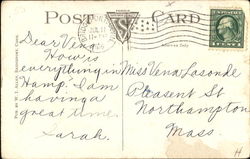 POST CARD
Dear Vena
How is
everything in
Hamp. I am
having a
great time.
Sarah.
Miss Vena Lasonde
Pleasent St
Northampton
Mass.